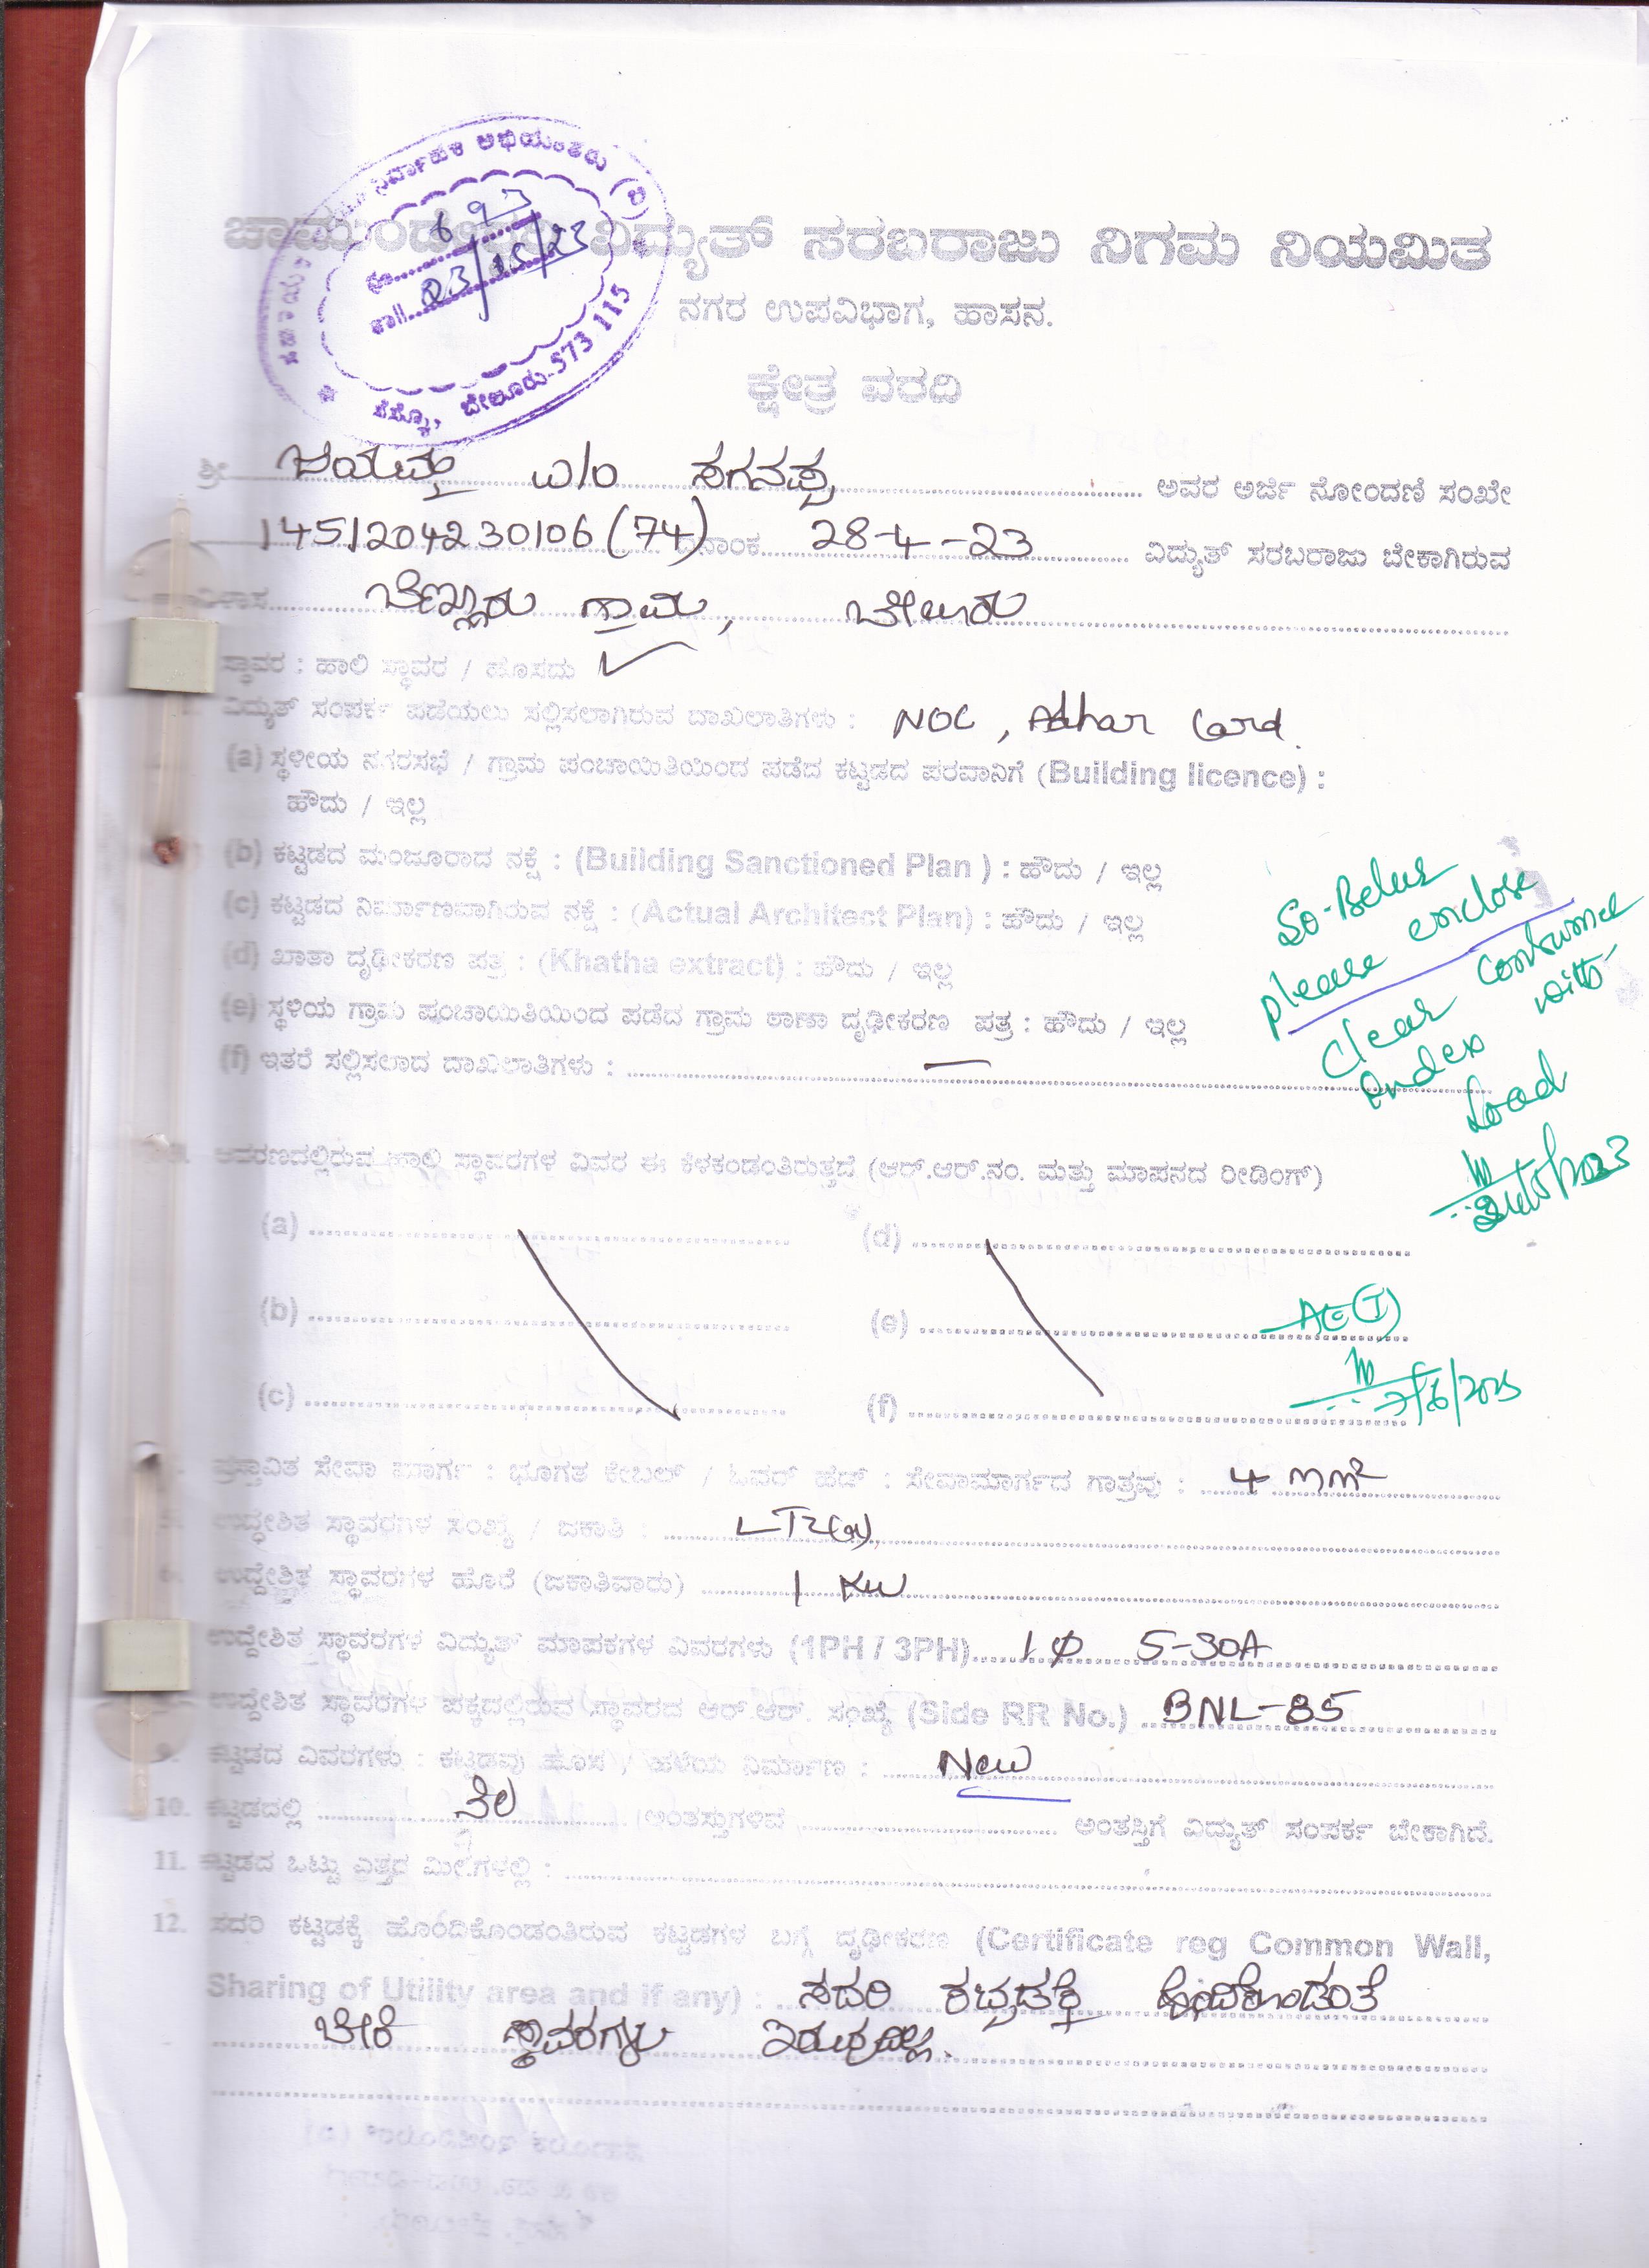 ನಿರ್ವಾಹಕ ಅಭಿಯಂತರರು (ವಿ)
693
23/05/23
ಸೆಸ್ಕಾಂ, ಬೇಲೂರು-573 115
ಚಾಮುಂಡೇಶ್ವರಿ ವಿದ್ಯುತ್ ಸರಬರಾಜು ನಿಗಮ ನಿಯಮಿತ
ನಗರ ಉಪವಿಭಾಗ, ಹಾಸನ.
ಕ್ಷೇತ್ರ ವರದಿ
ಶ್ರೀ ಜಯಮ್ಮ w/o ........ ಅವರ ಅರ್ಜಿ ನೋಂದಣಿ ಸಂಖೇ
14512042 30106 (74) ದಿನಾಂಕ 28-4-23 ವಿದ್ಯುತ್ ಸರಬರಾಜು ಬೇಕಾಗಿರುವ
ವಿಳಾಸ ಗ್ರಾಮ, ಬೇಲೂರು
ಸ್ಥಾವರ : ಹಾಲಿ ಸ್ಥಾವರ / ಹೊಸದು ✓
ವಿದ್ಯುತ್ ಸಂಪರ್ಕ ಪಡೆಯಲು ಸಲ್ಲಿಸಲಾಗಿರುವ ದಾಖಲಾತಿಗಳು : NOC, Adhar Card.
(a) ಸ್ಥಳೀಯ ನಗರಸಭೆ / ಗ್ರಾಮ ಪಂಚಾಯಿತಿಯಿಂದ ಪಡೆದ ಕಟ್ಟಡದ ಪರವಾನಿಗೆ (Building licence) :
ಹೌದು / ಇಲ್ಲ
(b) ಕಟ್ಟಡದ ಮಂಜೂರಾದ ನಕ್ಷೆ : (Building Sanctioned Plan ) : ಹೌದು / ಇಲ್ಲ
(c) ಕಟ್ಟಡದ ನಿರ್ಮಾಣವಾಗಿರುವ ನಕ್ಷೆ : (Actual Architect Plan) : ಹೌದು / ಇಲ್ಲ
(d) ಖಾತಾ ದೃಢೀಕರಣ ಪತ್ರ : (Khatha extract) : ಹೌದು / ಇಲ್ಲ
(e) ಸ್ಥಳಿಯ ಗ್ರಾಮ ಪಂಚಾಯಿತಿಯಿಂದ ಪಡೆದ ಗ್ರಾಮ ಠಾಣಾ ದೃಢೀಕರಣ ಪತ್ರ : ಹೌದು / ಇಲ್ಲ
(f) ಇತರೆ ಸಲ್ಲಿಸಲಾದ ದಾಖಲಾತಿಗಳು : —
So-Belur
please enclose
clear consumer
Index with
Load
ಆವರಣದಲ್ಲಿರುವ ಹಾಲಿ ಸ್ಥಾವರಗಳ ವಿವರ ಈ ಕೆಳಕಂಡಂತಿರುತ್ತದೆ (ಆರ್.ಆರ್.ನಂ. ಮತ್ತು ಮಾಪನದ ರೀಡಿಂಗ್)
(a) (d)
(b) (e) AE(T)
(c) (f)
ಪ್ರಸ್ತಾವಿತ ಸೇವಾ ಮಾರ್ಗ : ಭೂಗತ ಕೇಬಲ್ / ಓವರ್ ಹೆಡ್ : ಸೇವಾಮಾರ್ಗದ ಗಾತ್ರವು : 4 mm²
ಉದ್ದೇಶಿತ ಸ್ಥಾವರಗಳ ಸಂಖ್ಯೆ / ಜಕಾತಿ : LT2(a)
ಉದ್ದೇಶಿತ ಸ್ಥಾವರಗಳ ಹೊರೆ (ಜಕಾತಿವಾರು) 1 KW
ಉದ್ದೇಶಿತ ಸ್ಥಾವರಗಳ ವಿದ್ಯುತ್ ಮಾಪಕಗಳ ವಿವರಗಳು (1PH / 3PH) 1φ 5-30A
ಉದ್ದೇಶಿತ ಸ್ಥಾವರಗಳ ಪಕ್ಕದಲ್ಲಿರುವ ಸ್ಥಾವರದ ಆರ್.ಆರ್. ಸಂಖ್ಯೆ (Side RR No.) BNL-85
9. ಕಟ್ಟಡದ ವಿವರಗಳು : ಕಟ್ಟಡವು ಹೊಸ / ಹಳೆಯ ನಿರ್ಮಾಣ : New
10. ಕಟ್ಟಡದಲ್ಲಿ ನೆಲ ಅಂತಸ್ತುಗಳಿವೆ ಅಂತಸ್ತಿಗೆ ವಿದ್ಯುತ್ ಸಂಪರ್ಕ ಬೇಕಾಗಿದೆ.
11. ಕಟ್ಟಡದ ಒಟ್ಟು ಎತ್ತರ ಮೀ.ಗಳಲ್ಲಿ :
12. ಸದರಿ ಕಟ್ಟಡಕ್ಕೆ ಹೊಂದಿಕೊಂಡಂತಿರುವ ಕಟ್ಟಡಗಳ ಬಗ್ಗೆ ದೃಢೀಕರಣ (Certificate reg Common Wall,
Sharing of Utility area and if any) : ಸದರಿ ಕಟ್ಟಡಕ್ಕೆ ಹೊಂದಿಕೊಂಡಂತೆ
ಬೇರೆ ಸ್ಥಾವರಗಳು ಇರುವುದಿಲ್ಲ.